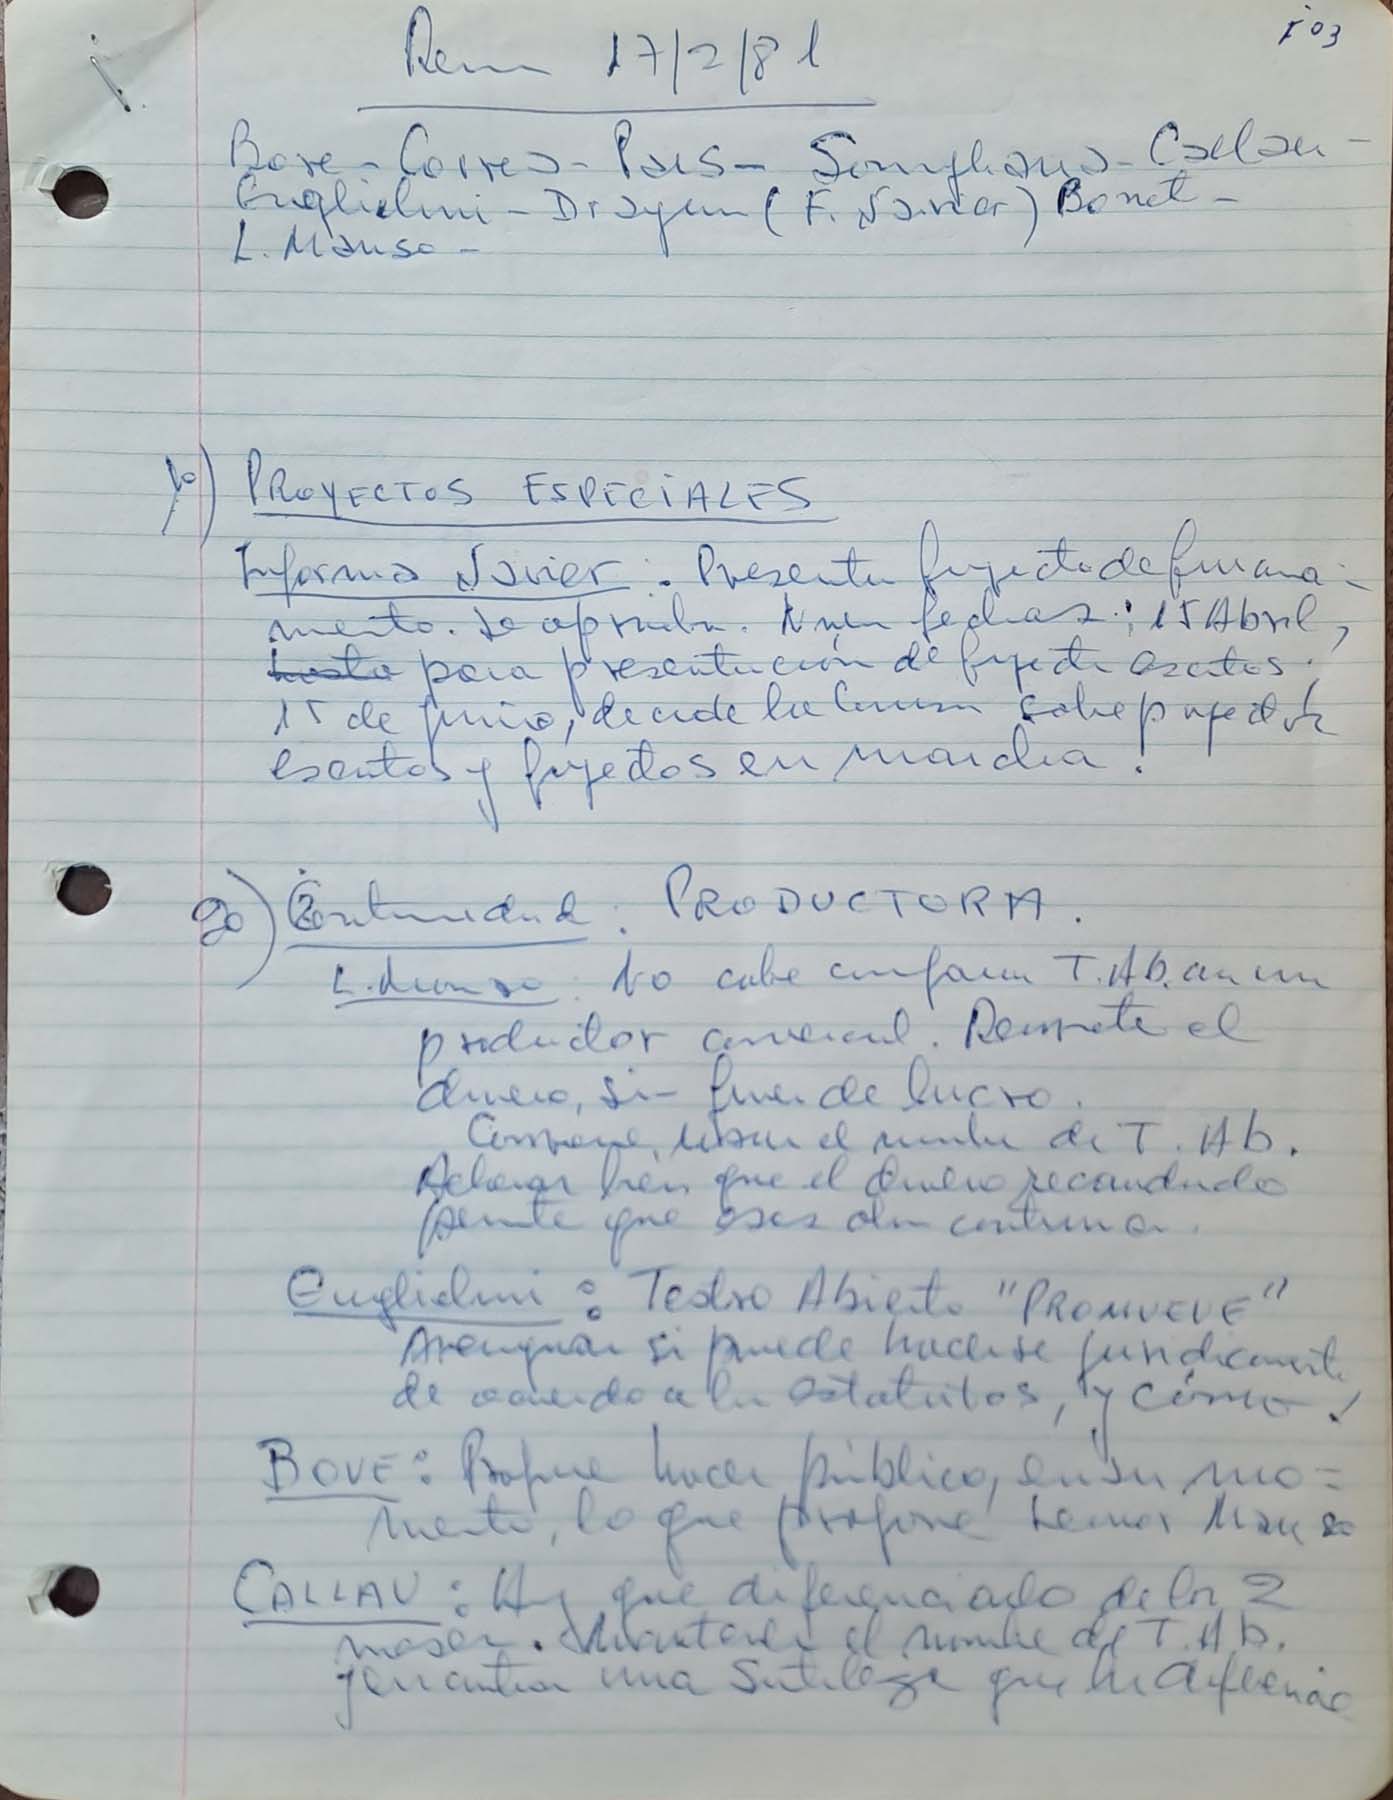 17/2/81
Bove - Correa - Pais - Somigliana - Callau -
Guglielmi - Dragun (F. Javier) Bonet -
L. Manso -
1º) PROYECTOS ESPECIALES
Informa Javier: Presenta proyecto de financia-
miento. Se aprueba. fechas: 15 Abril,
hasta para presentación de proyectos escritos.
15 de junio, decide la sobre proyectos
escritos y proyectos en marcha.
2º) Continuidad: PRODUCTORA.
L. Manso: No cabe T. Ab. en un
productor comercial. el
dinero, sin fines de lucro.
Conviene usar el nombre de T. Ab.
Aclarar bien que el dinero recaudado
permite que continúa.
Guglielmi: Teatro Abierto "PROMUEVE"
Averiguar si puede hacerse jurídicamente
de acuerdo a los estatutos, y cómo!
BOVE: Propone hacer público, en su mo=
mento, lo que propone Leonor Manso
CALLAU: Hay que diferenciarlo de los 2
meses. Mantener el nombre de T. Ab.
una que la diferencie